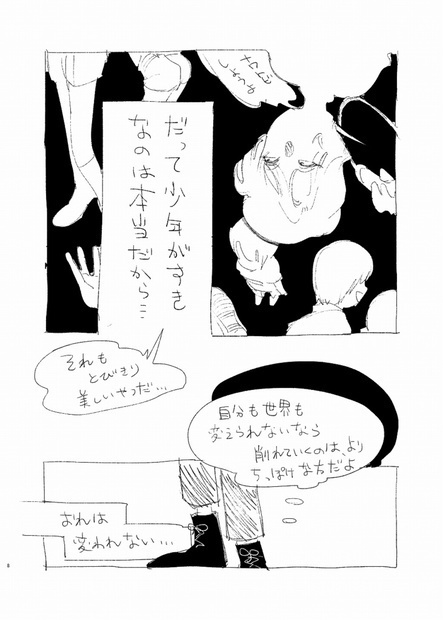 だって少年がすき
なのは本当だから…
それも
とびきり
美しいやつだ…
自分も世界も
変えられないなら
削れていくのは、より
ちっぽけな方だよ
おれは
変われない…
8